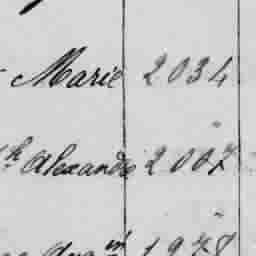 Marie 2034
h Alexandre 2007
m 1978